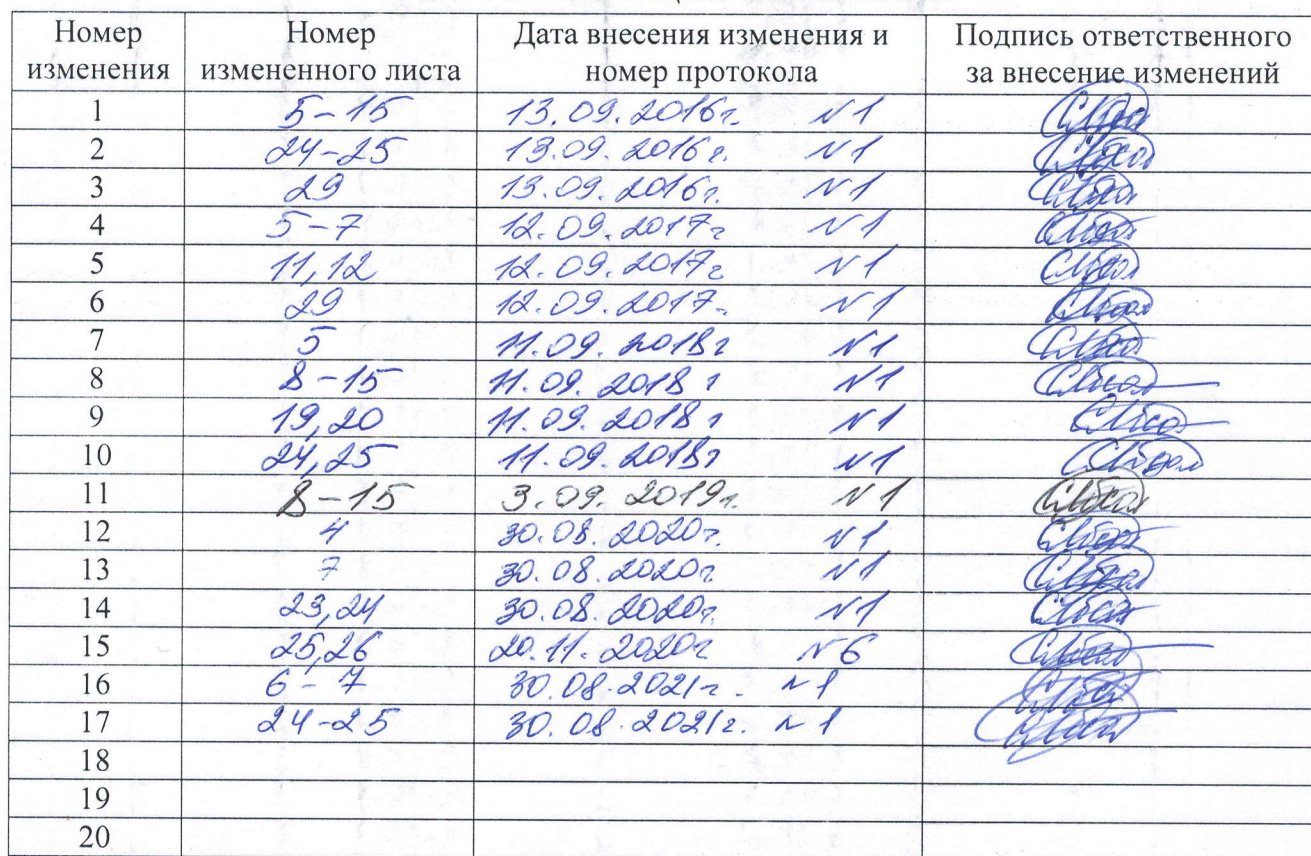 Номер изменения Номер измененного листа Дата внесения изменения и номер протокола Подпись ответственного за внесение изменений
1 5-15 13.09.2016г. N1
2 24-25 13.09.2016г. N1
3 29 13.09.2016г. N1
4 5-7 12.09.2017г N1
5 11,12 12.09.2017г N1
6 29 12.09.2017г. N1
7 5 11.09.2018г N1
8 8-15 11.09.2018г N1
9 19,20 11.09.2018г N1
10 24,25 11.09.2018г N1
11 8-15 3.09.2019г. N1
12 4 30.08.2020г. N1
13 7 30.08.2020г N1
14 23,24 30.08.2020г. N1
15 25,26 20.11.2020г N6
16 6-7 30.08.2021г. N1
17 24-25 30.08.2021г. N1
18
19
20